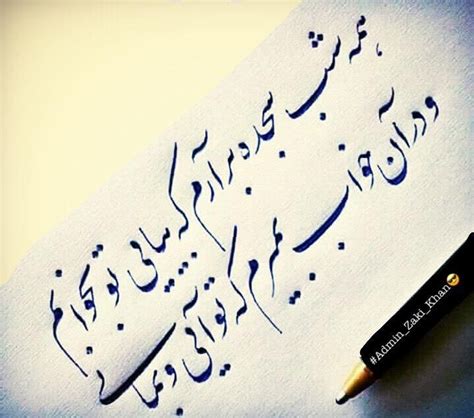 همه شب سجده برآرم که بیایی تو بخوابم
و در آن خواب بمیرم که تو آیی و بمانی
#Admin_Zaki_Khan😍